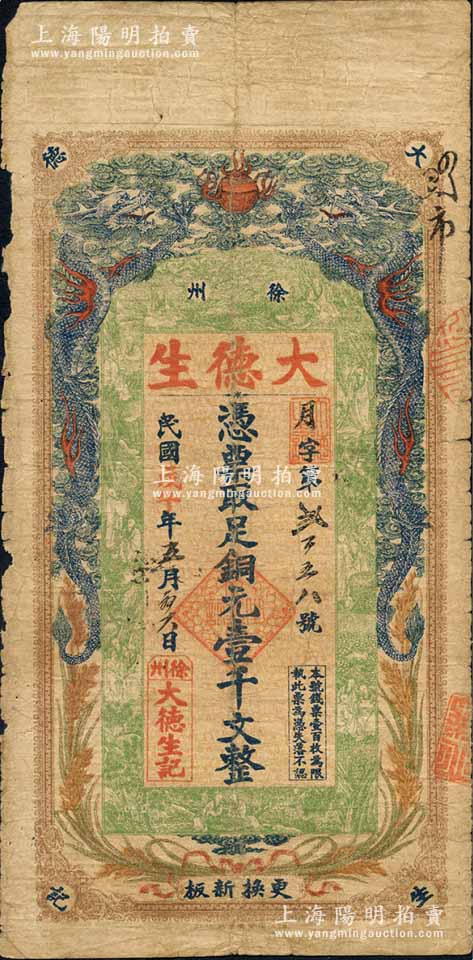 上海陽明拍賣
www.yangmingauction.com
大德生記
徐州
大德生
月字第
五八號
憑票取足銅元壹千文整
民國
十年五月
日
徐州
大德生記
本號錢票壹百枚為限
執此票為憑失落不認
更換新板
上海陽明拍賣
www.yangmingauction.com
上海陽明拍賣
www.yangmingauction.com